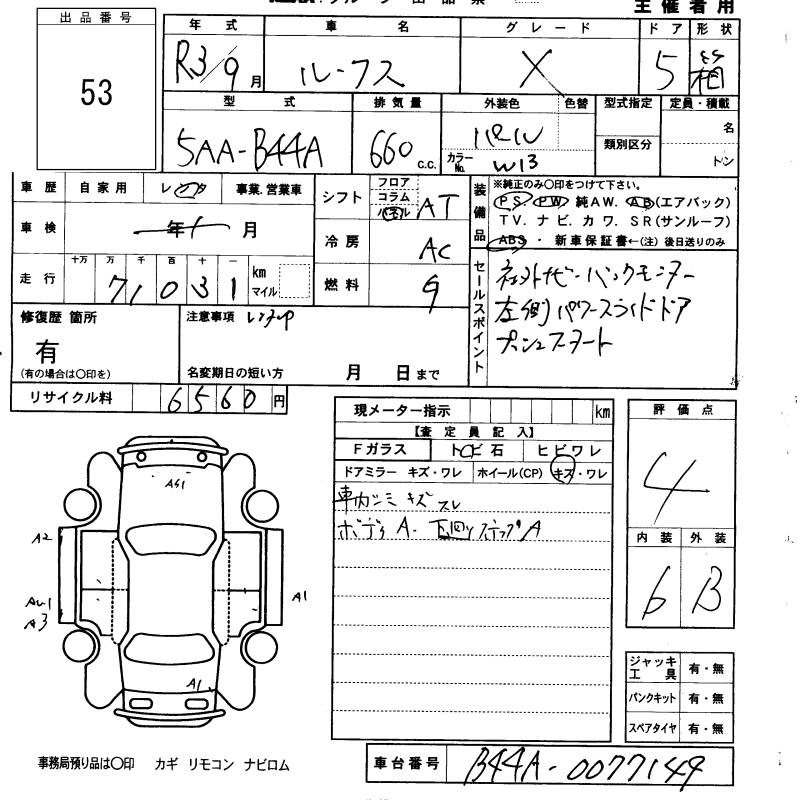 主催者用
出品番号
53
年式 車名 グレード ドア 形状
R3/9月 ルークス X 5 箱
型式 排気量 外装色 色替 型式指定 定員・積載
5AA-B44A 660 c.c. パール カラーNo. W13 類別区分 名 トン
車歴 自家用 レンタ 事業.営業車
車検 年 月
走行 十万 万 千 百 十 一 km マイル
71031
シフト フロア コラム AT
冷房 AC
燃料 G
装備品 ※純正のみ〇印をつけて下さい。
PS. PW 純AW. AB(エアバック)
TV. ナビ. カワ. SR(サンルーフ)
ABS ・ 新車保証書←(注) 後日送りのみ
セールスポイント
バックモニター
左側パワースライドドア
プッシュスタート
修復歴 箇所 注意事項 レンタup
有
(有の場合は〇印を) 名変期日の短い方 月 日まで
リサイクル料 6560円
現メーター指示 km
【査定員記入】
Fガラス トビ石 ヒビワレ
ドアミラー キズ・ワレ ホイール(CP) キズ・ワレ
車内ゴミキズスレ
ボディA. 下回りステップA
評価点
4
内装 外装
6 B
ジャッキ工具 有・無
パンクキット 有・無
スペアタイヤ 有・無
A2
A1
A3
A1
事務局預り品は〇印 カギ リモコン ナビロム
車台番号 B44A-0077149